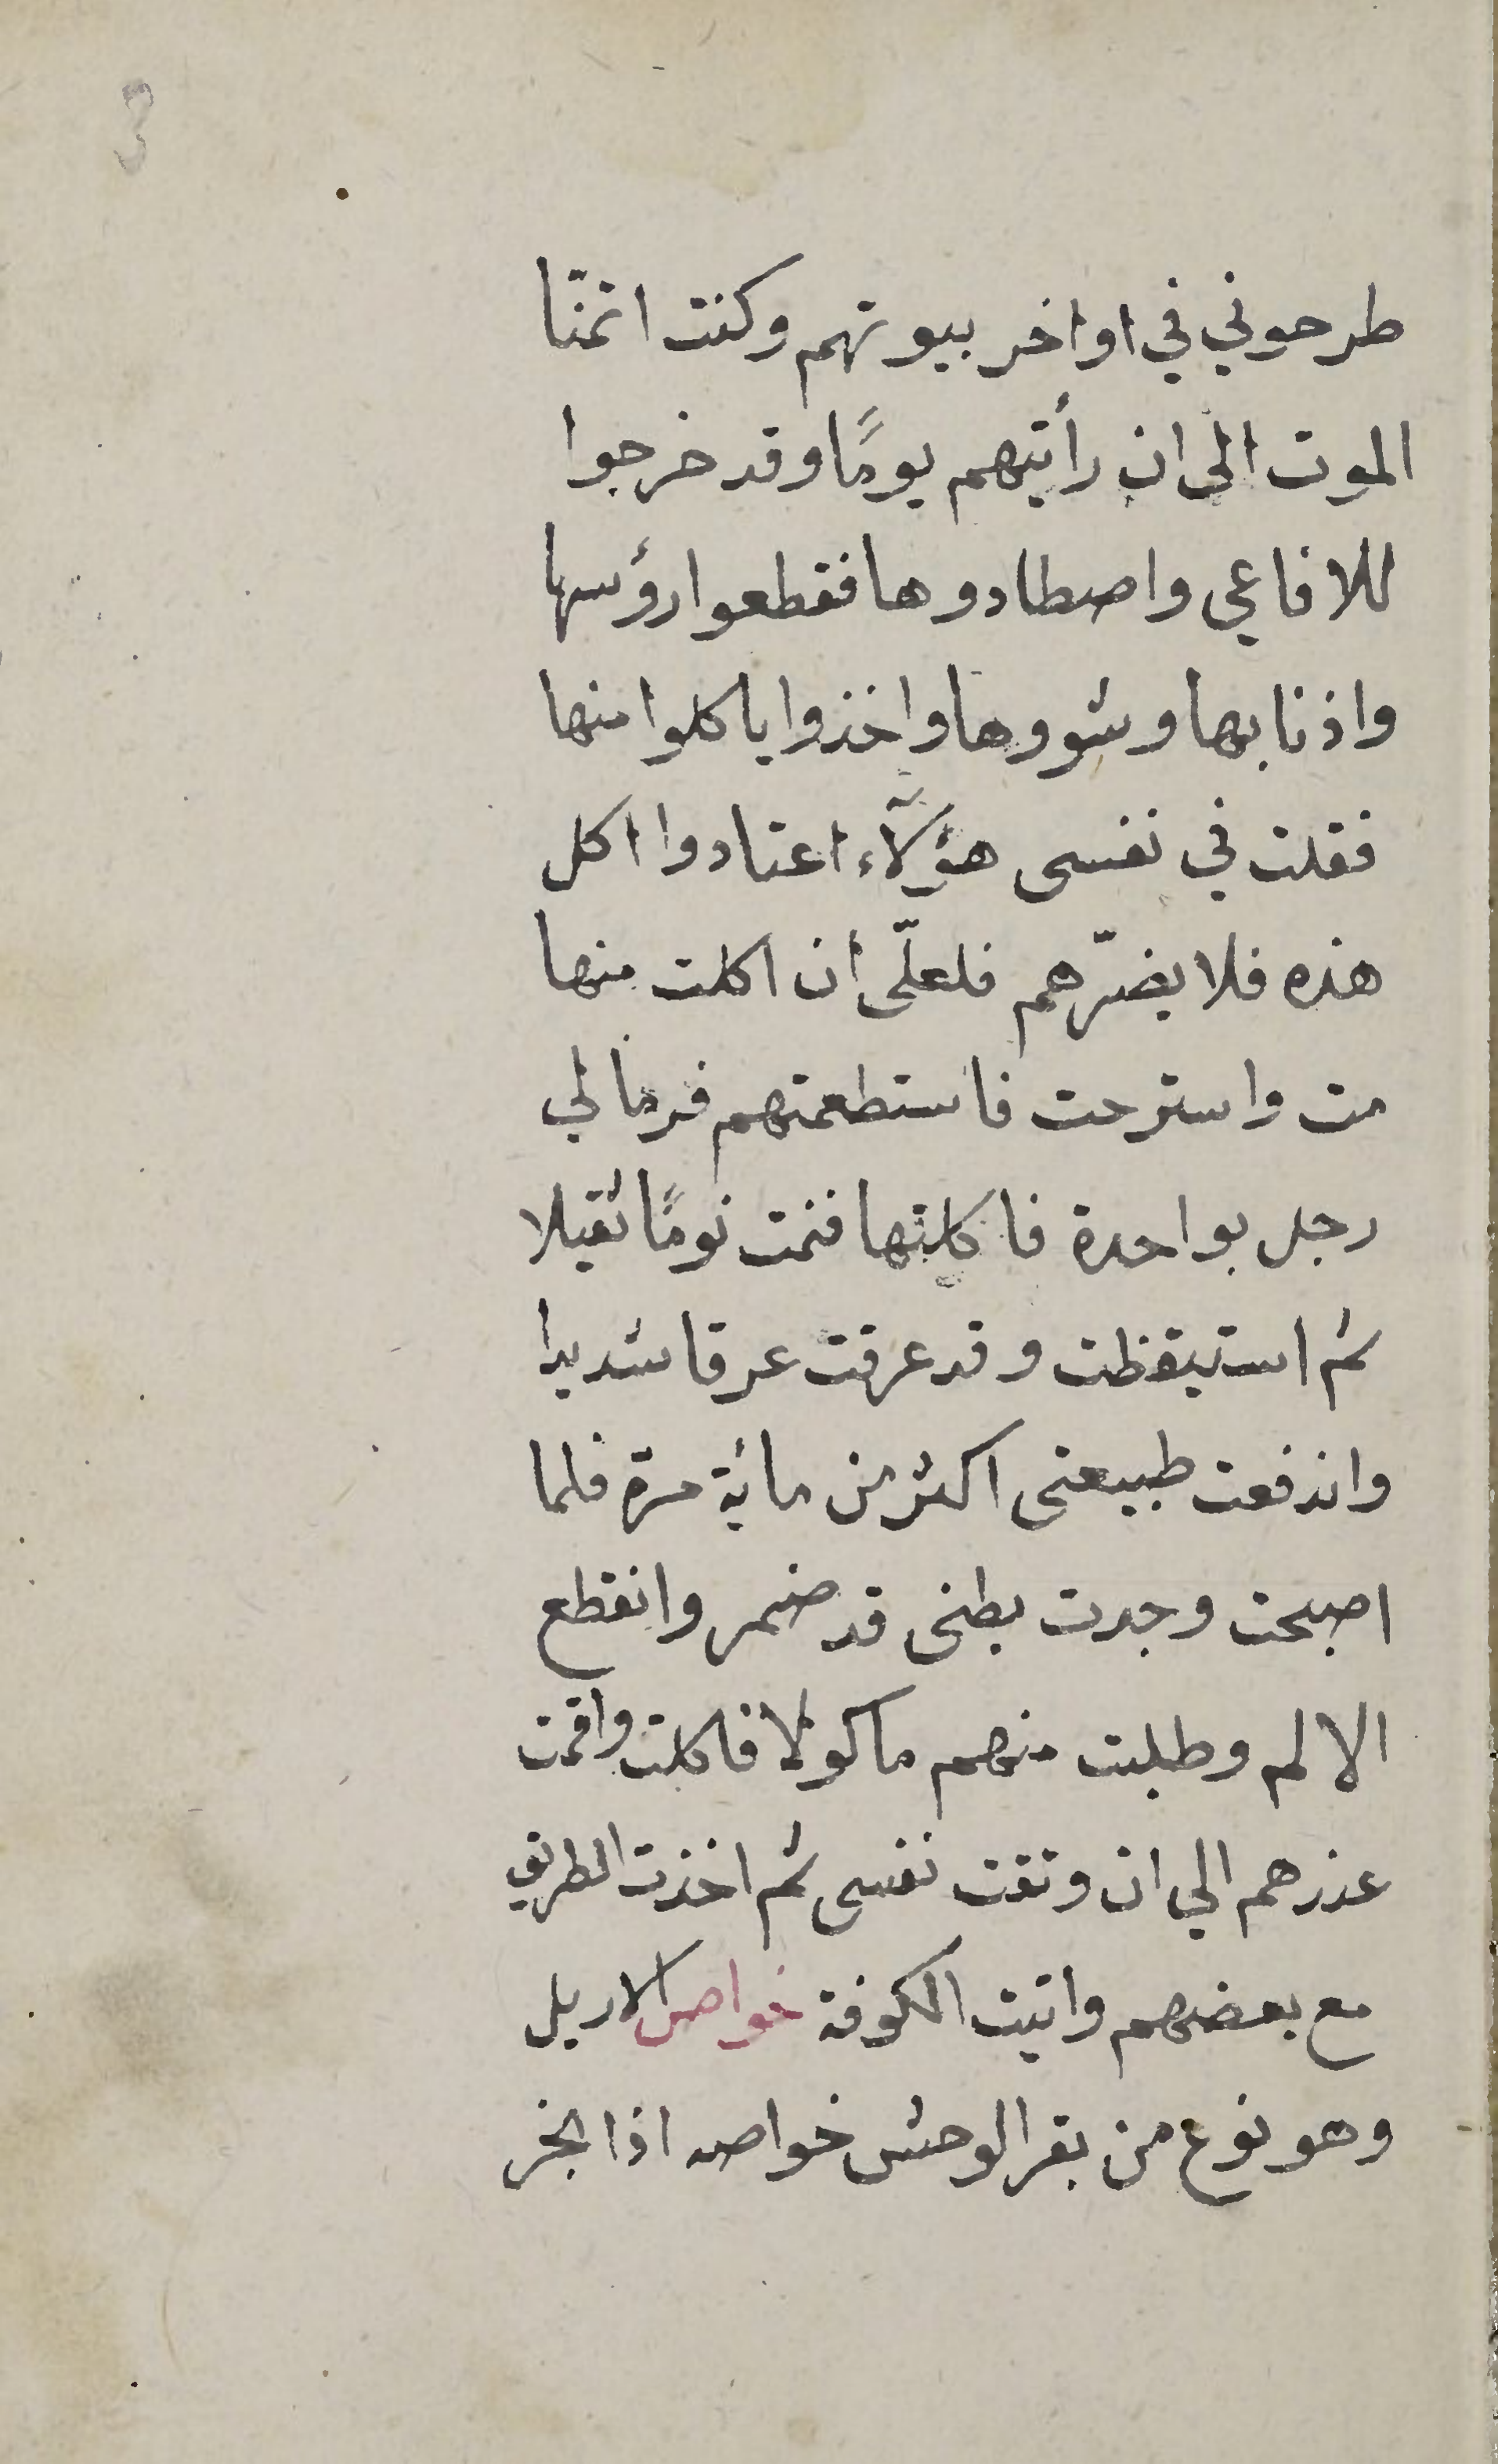 طرحوني في اواخر بيوتهم وكنت اتمنّا
الموت الى ان رأيتهم يومًا وقد خرجوا
للافاعي واصطادوها فقطعوا رؤسها
واذنابها وشووها واخذوا ياكلوا منها
فقلت في نفسى هؤلآء اعتادوا اكل
هذه فلا يضرّهم فلعلّى ان اكلت منها
مت واسترحت فاستطعمتهم فرمالي
رجل بواحدة فاكلتها فنمت نومًا ثقيلا
ثم استيقظت وقد عرقت عرقا شديدا
واندفعت طبيعتى اكثر من مائة مرة فلما
اصبحت وجدت بطنى قد ضمر وانقطع
الالم وطلبت منهم ماكولا فاكلت واقمت
عندهم الي ان وثقت نفسى ثم اخذت الطريق
مع بعضهم واتيت الكوفة خواص الاريل
وهو نوع من بقر الوحش خواصه اذا بخر